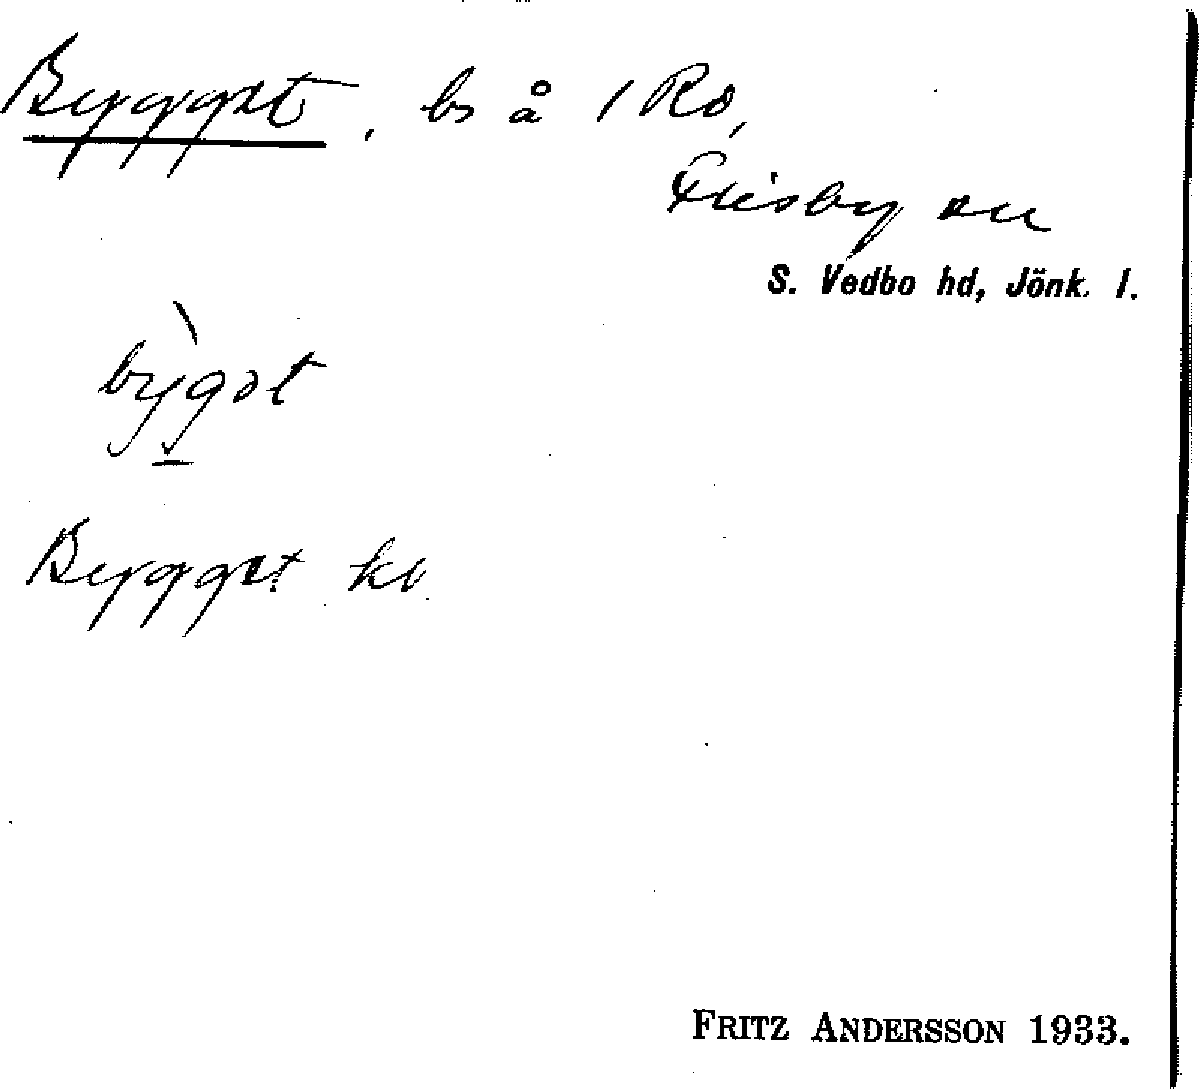 Bygget, bs å 1 Ro,
Flisby sn
S. Vedbo hd, Jönk. l.
bỳgət
Bygget kb
FRITZ ANDERSSON 1933.